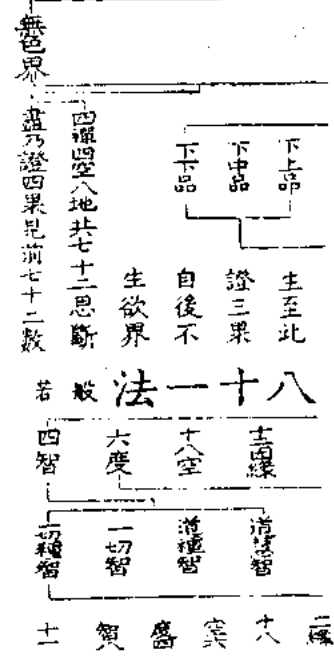 下上品
下中品
下下品
生至此
證三果
自後不
生欲界
無色界
四禪四空八地共七十二思斷
盡乃證四果見前七十二數
八十一法
般若
十二因緣
十八空
六度
四智
道慧智
道種智
一切智
一切種智
十八